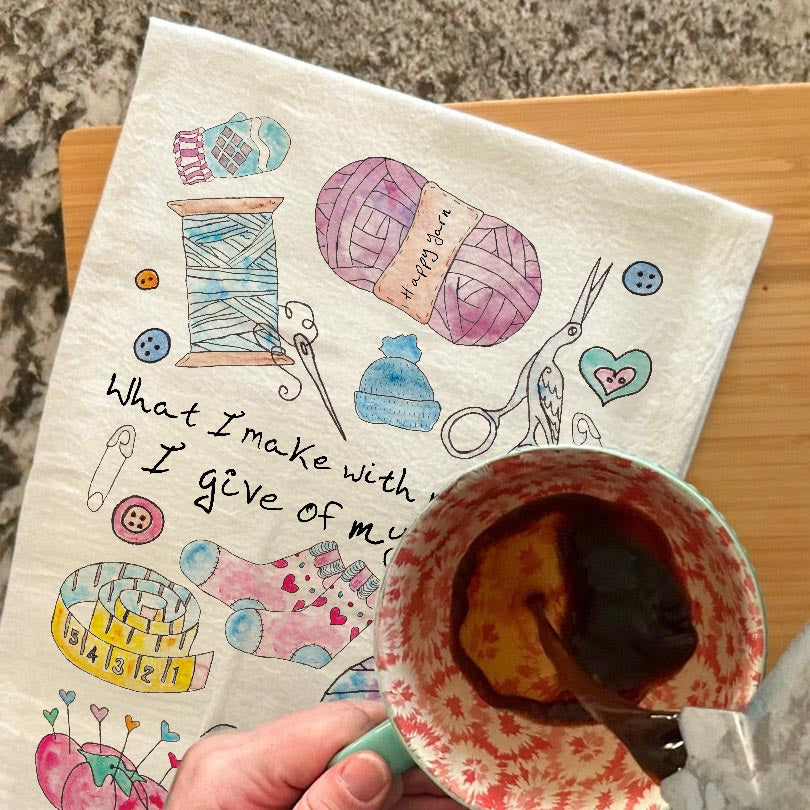 Happy Yarn
What I make with
I give of my
5 4 3 2 1